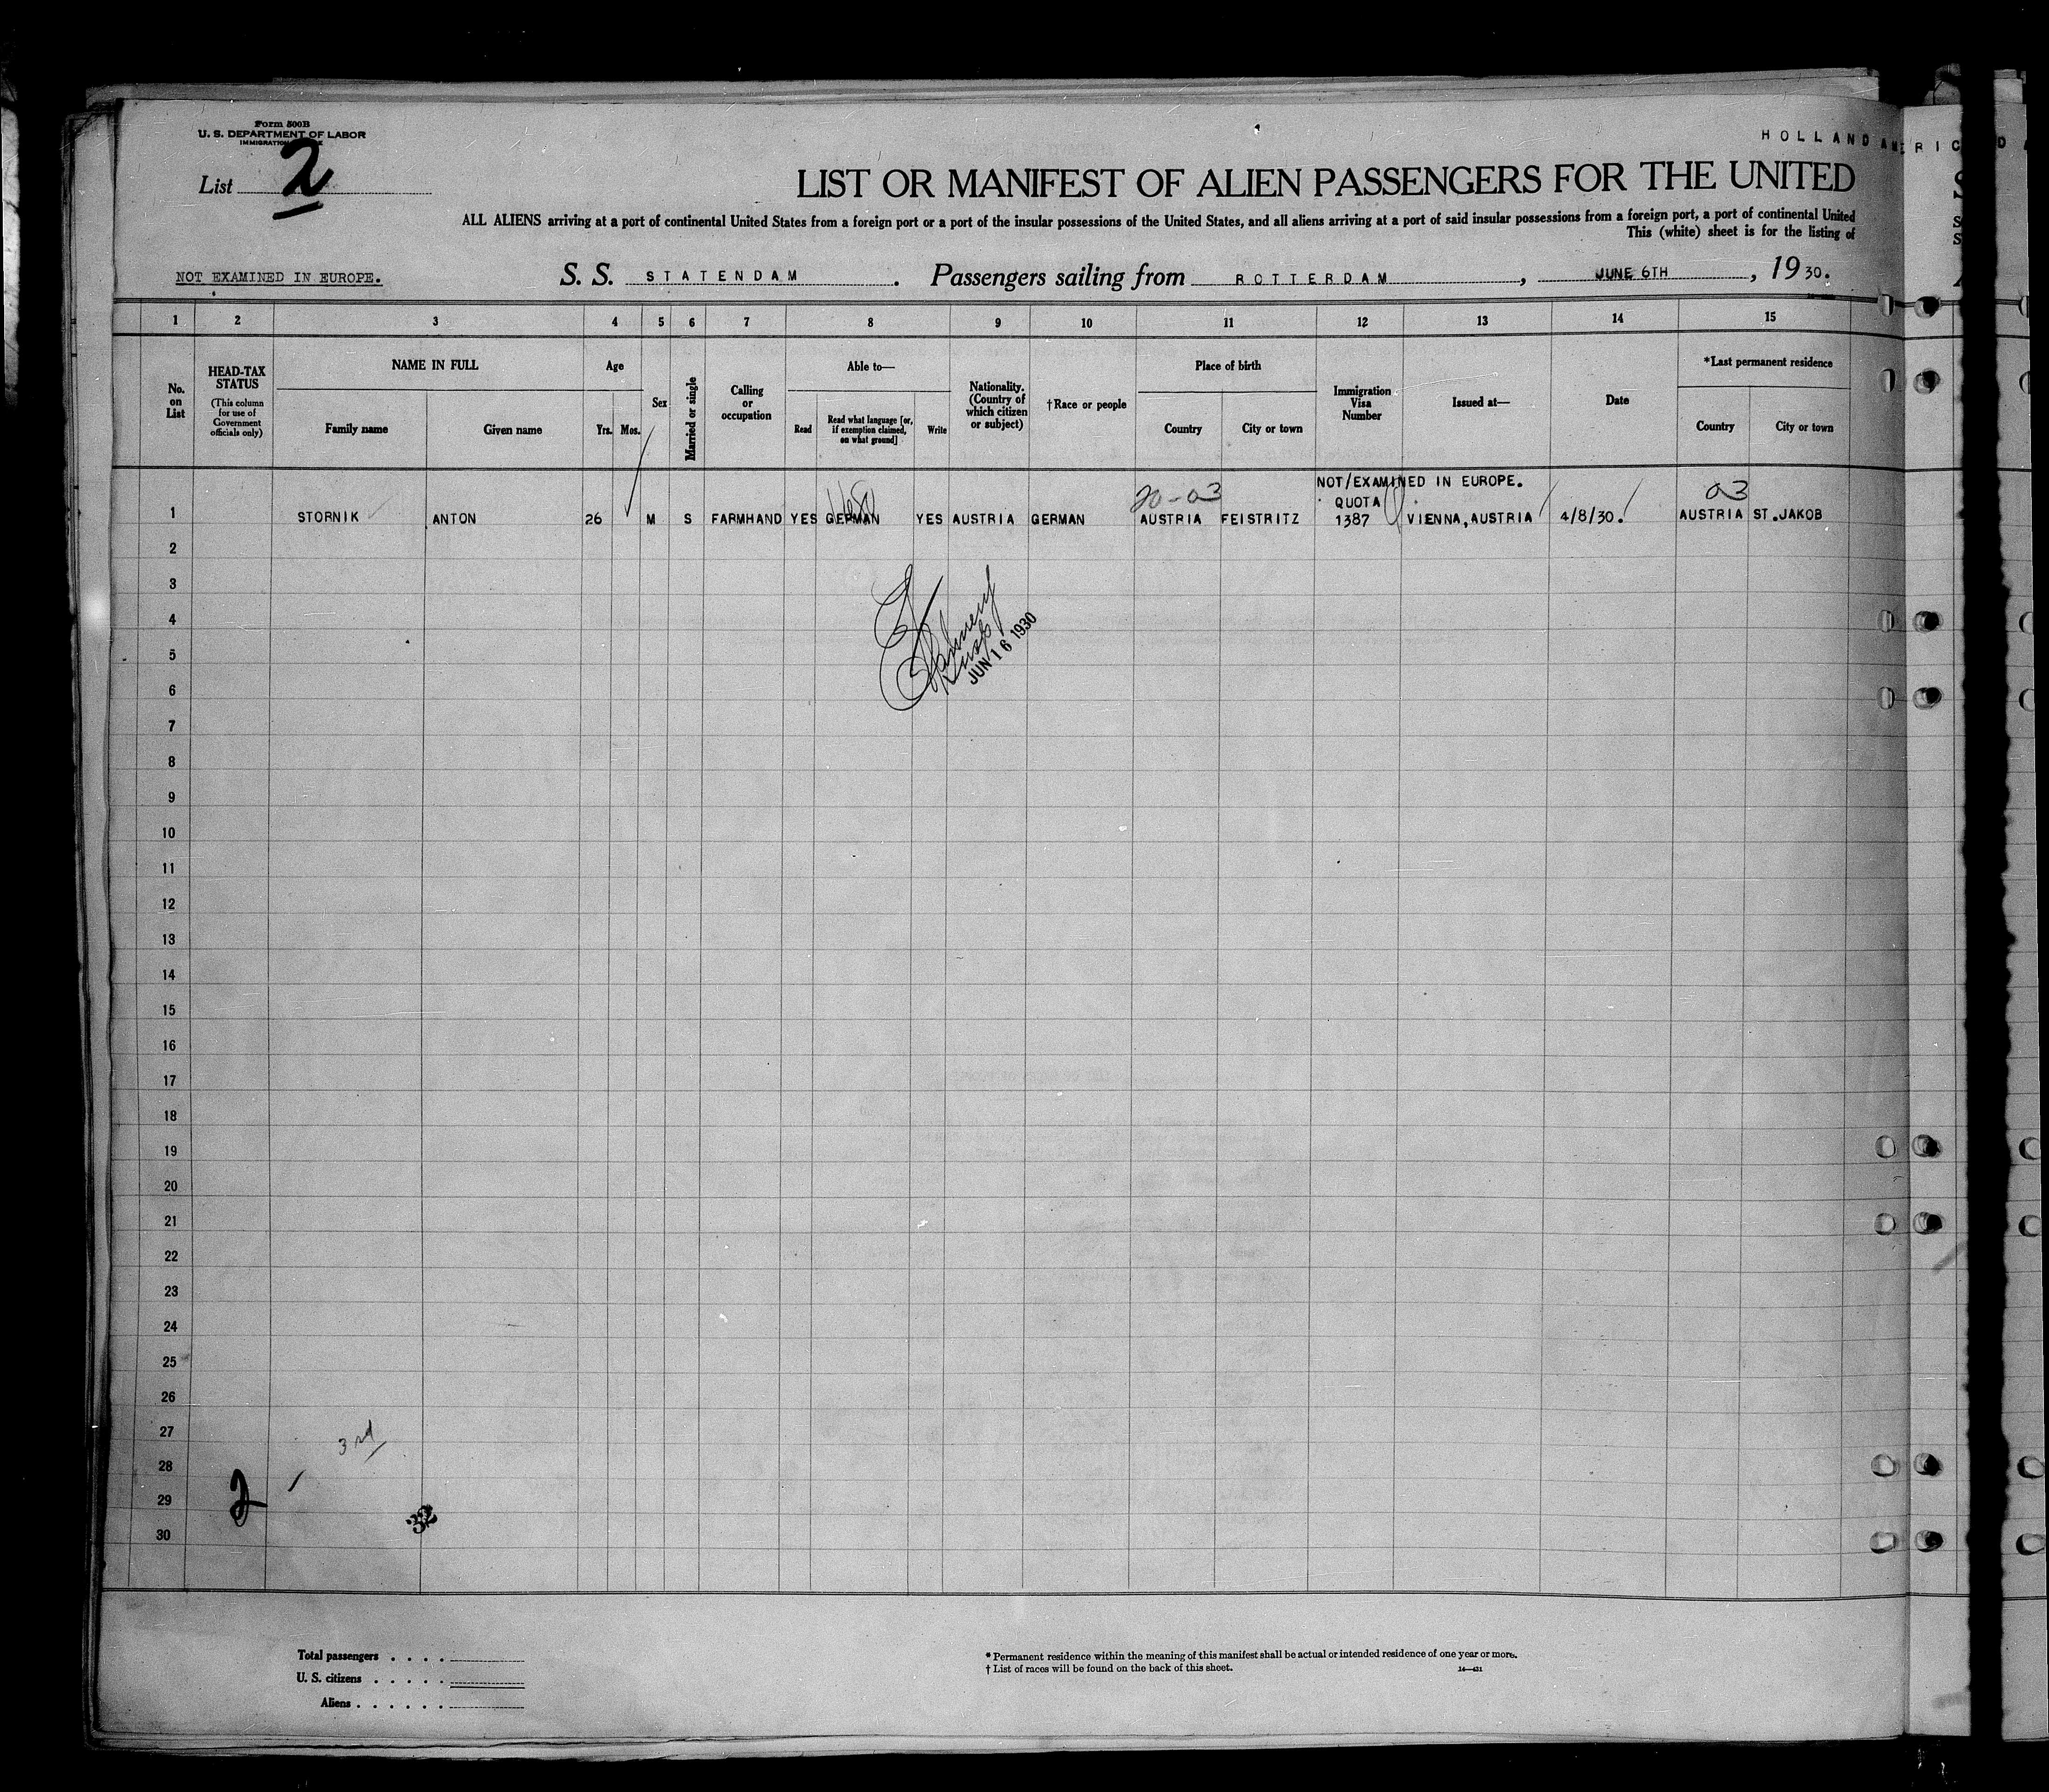 Form 500B
U. S. DEPARTMENT OF LABOR
IMMIGRATION
HOLLAND AMERIC
List 2
LIST OR MANIFEST OF ALIEN PASSENGERS FOR THE UNITED
ALL ALIENS arriving at a port of continental United States from a foreign port or a port of the insular possessions of the United States, and all aliens arriving at a port of said insular possessions from a foreign port, a port of continental United
This (white) sheet is for the listing of
NOT EXAMINED IN EUROPE.
S. S. STATENDAM. Passengers sailing from ROTTERDAM, JUNE 6TH, 1930.
1 2 3 4 5 6 7 8 9 10 11 12 13 14 15
No. on List
HEAD-TAX STATUS (This column for use of Government officials only)
NAME IN FULL
Family name
Given name
Age
Yrs. Mos.
Sex
Married or single
Calling or occupation
Able to—
Read
Read what language [or, if exemption claimed, on what ground]
Write
Nationality. (Country of which citizen or subject)
†Race or people
Place of birth
Country
City or town
Immigration Visa Number
Issued at—
Date
*Last permanent residence
Country
City or town
NOT/EXAMINED IN EUROPE.
20-03
QUOTA
03
1 STORNIK ANTON 26 M S FARMHAND YES GERMAN YES AUSTRIA GERMAN AUSTRIA FEISTRITZ 1387 VIENNA, AUSTRIA 4/8/30. AUSTRIA ST.JAKOB
2
3
4
5
JUN 16 1930
6
7
8
9
10
11
12
13
14
15
16
17
18
19
20
21
22
23
24
25
26
27
3rd
28
29
2
32
30
Total passengers . . . .
U. S. citizens . . . . .
Aliens . . . . . .
* Permanent residence within the meaning of this manifest shall be actual or intended residence of one year or more.
† List of races will be found on the back of this sheet.
14—431